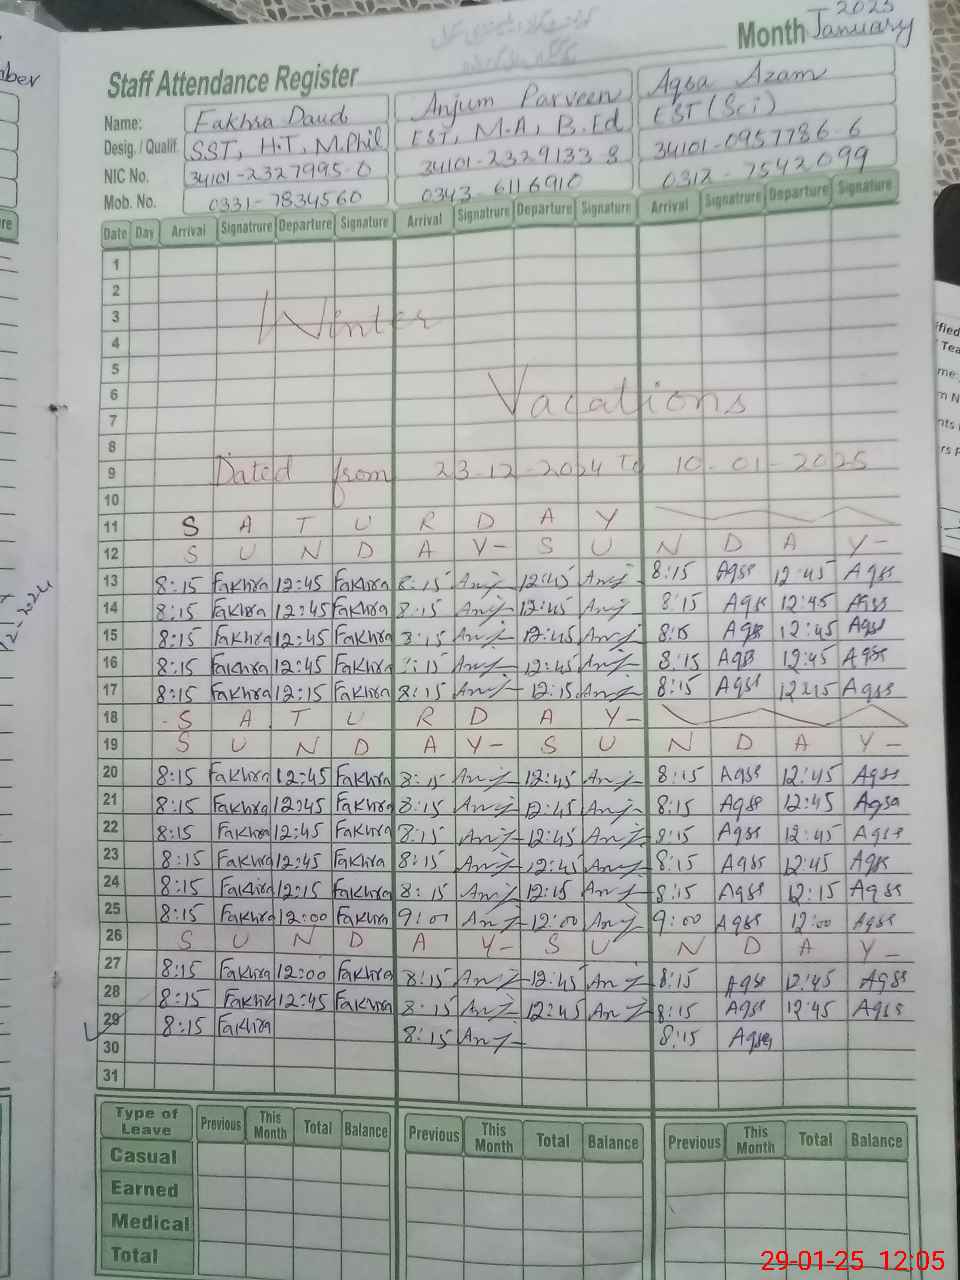 2025
Month January
Staff Attendance Register
Name: Fakhra Daud Anjum Parveen Aqsa Azam
Desig. / Qualif. SST, H.T, M.Phil EST, M.A, B.Ed EST (Sci)
NIC No. 34101-2327995-0 34101-2329133 8 34101-0957786-6
Mob. No. 0331-7834560 0343-6116910 0312-7542099
Date Day Arrival Signatrure Departure Signature Arrival Signatrure Departure Signature Arrival Signatrure Departure Signature
1
2
3 Winter
4
5
6 Vacations
7
8
9 Dated from 23-12-2024 To 10-01-2025
10
11 S A T U R D A Y
12 S U N D A Y- S U N D A Y-
13 8:15 Fakhra 12:45 Fakhra 8:15 Anj 12:45 Anj 8:15 Aqss 12:45 Aqss
14 8:15 Fakhra 12:45 Fakhra 8:15 Anj 12:45 Anj 8:15 Aqss 12:45 Aqss
15 8:15 Fakhra 12:45 Fakhra 8:15 Anj 12:45 Anj 8:15 Aqss 12:45 Aqss
16 8:15 Fakhra 12:45 Fakhra 8:15 Anj 12:45 Anj 8:15 Aqss 12:45 Aqss
17 8:15 Fakhra 12:15 Fakhra 8:15 Anj 12:15 Anj 8:15 Aqss 12:15 Aqss
18 S A T U R D A Y-
19 S U N D A Y- S U N D A Y-
20 8:15 Fakhra 12:45 Fakhra 8:15 Anj 12:45 Anj 8:15 Aqss 12:45 Aqss
21 8:15 Fakhra 12:45 Fakhra 8:15 Anj 12:45 Anj 8:15 Aqss 12:45 Aqsa
22 8:15 Fakhra 12:45 Fakhra 8:15 Anj 12:45 Anj 8:15 Aqss 12:45 Aqss
23 8:15 Fakhra 12:45 Fakhra 8:15 Anj 12:45 Anj 8:15 Aqss 12:45 Aqss
24 8:15 Fakhra 12:15 Fakhra 8:15 Anj 12:15 Anj 8:15 Aqss 12:15 Aqss
25 8:15 Fakhra 12:00 Fakhra 9:00 Anj 12:00 Anj 9:00 Aqss 12:00 Aqss
26 S U N D A Y- S U N D A Y-
27 8:15 Fakhra 12:00 Fakhra 8:15 Anj 12:45 Anj 8:15 Aqss 12:45 Aqss
28 8:15 Fakhra 12:45 Fakhra 8:15 Anj 12:45 Anj 8:15 Aqss 12:45 Aqss
29 8:15 Fakhra 8:15 Anj 8:15 Aqsa
30
31
Type of Leave Previous This Month Total Balance Previous This Month Total Balance Previous This Month Total Balance
Casual
Earned
Medical
Total
29-01-25 12:05